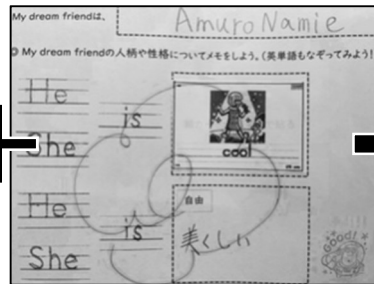 My dream friendは、 Amuro Namie
◎ My dream friendの人柄や性格についてメモをしよう。(英単語もなぞってみよう!
He
is
She
cool
He
is
She
自由
美くしい
Good!